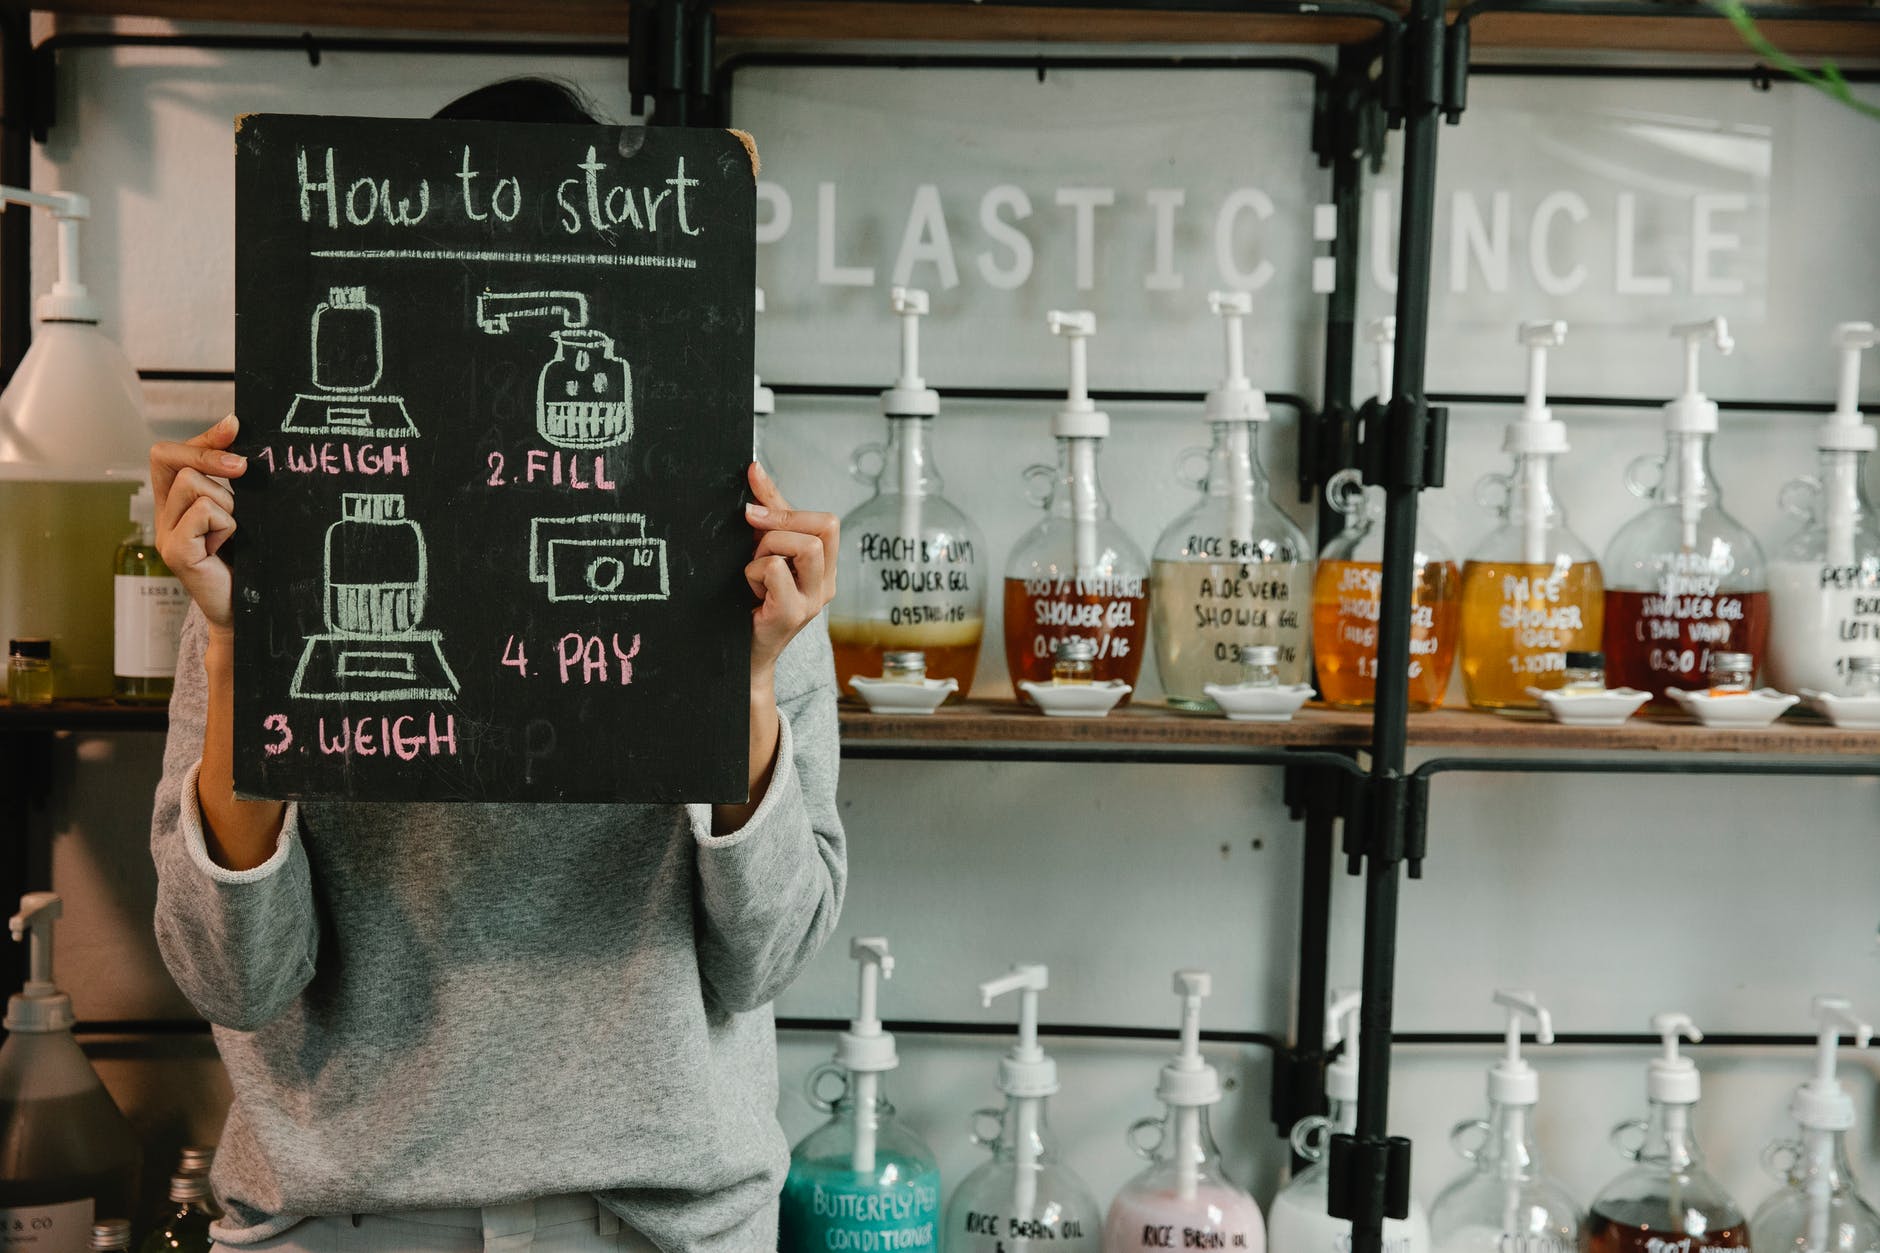 How to start.
1. WEIGH
2. FILL
3. WEIGH
4. PAY
10
PLASTIC:UNCLE
LESS &
PEACH
SHOWER GEL
0.95THB/1G
100% NATURAL
SHOWER GEL
/1G
RICE BRAN OIL
&
ALOE VERA
SHOWER GEL
SHOWER GEL
RICE
SHOWER
GEL
1.10TH
HONEY
SHOWER GEL
0.30 /1G
BUTTERFLY PEA
CONDITIONER
RICE BRAN OIL
RICE BRAN OIL
COCONUT
100%
& CO